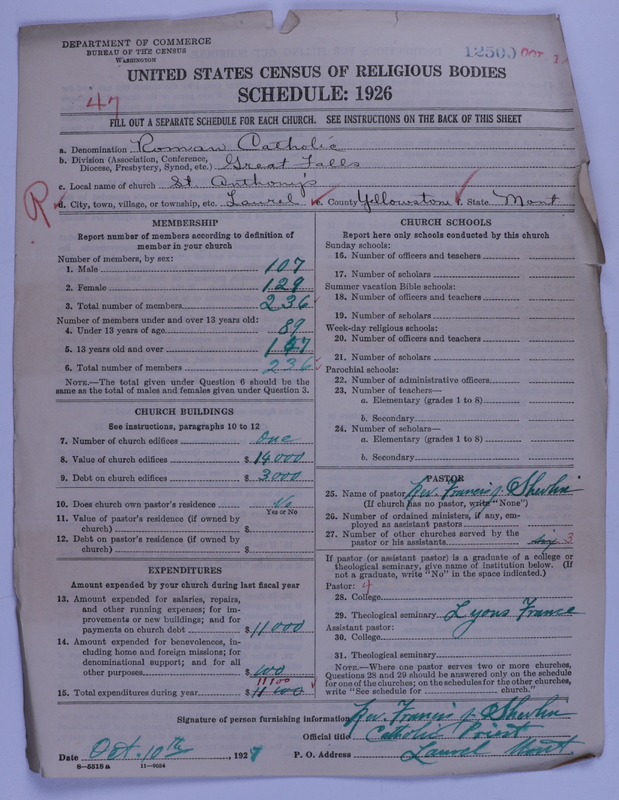 DEPARTMENT OF COMMERCE
BUREAU OF THE CENSUS
WASHINGTON
12500 OCT
UNITED STATES CENSUS OF RELIGIOUS BODIES
SCHEDULE: 1926
47
FILL OUT A SEPARATE SCHEDULE FOR EACH CHURCH. SEE INSTRUCTIONS ON THE BACK OF THIS SHEET
a. Denomination Roman Catholic
b. Division (Association, Conference, Diocese, Presbytery, Synod, etc.) Great Falls
c. Local name of church St. Anthony's
R
d. City, town, village, or township, etc. Laurel e. County Yellowstone f. State Mont
MEMBERSHIP
Report number of members according to definition of
member in your church
Number of members, by sex:
1. Male 107
2. Female 129
3. Total number of members 236
Number of members under and over 13 years old:
4. Under 13 years of age 89
5. 13 years old and over 147
6. Total number of members 236
NOTE.—The total given under Question 6 should be
same as the total of males and females given under Question 3.
CHURCH BUILDINGS
See instructions, paragraphs 10 to 12
7. Number of church edifices One
8. Value of church edifices $ 14000
9. Debt on church edifices $ 3000
10. Does church own pastor's residence? No
Yes or No
11. Value of pastor's residence (if owned by
church) $
12. Debt on pastor's residence (if owned by
church) $
EXPENDITURES
Amount expended by your church during last fiscal year
13. Amount expended for salaries, repairs,
and other running expenses; for im-
provements or new buildings; and for
payments on church debt $ 11000
14. Amount expended for benevolences, in-
cluding home and foreign missions; for
denominational support; and for all
other purposes $ 100
11100
15. Total expenditures during year $
CHURCH SCHOOLS
Report here only schools conducted by this church
Sunday schools:
16. Number of officers and teachers
17. Number of scholars
Summer vacation Bible schools:
18. Number of officers and teachers
19. Number of scholars
Week-day religious schools:
20. Number of officers and teachers
21. Number of scholars
Parochial schools:
22. Number of administrative officers
23. Number of teachers—
a. Elementary (grades 1 to 8)
b. Secondary
24. Number of scholars—
a. Elementary (grades 1 to 8)
b. Secondary
PASTOR
25. Name of pastor Rev. Francis J. Shevlin
(If church has no pastor, write "None")
26. Number of ordained ministers, if any, em-
ployed as assistant pastors
27. Number of other churches served by the
pastor or his assistants six 3
If pastor (or assistant pastor) is a graduate of a college or
theological seminary, give name of institution below. (If
not a graduate, write "No" in the space indicated.)
Pastor: 4
28. College
29. Theological seminary Lyons France
Assistant pastor:
30. College
31. Theological seminary
NOTE.—Where one pastor serves two or more churches,
Questions 28 and 29 should be answered only on the schedule
for one of the churches; on the schedules for the other churches,
write "See schedule for church."
Signature of person furnishing information Rev. Francis J. Shevlin
Official title Catholic Priest
Date Oct. 10th, 1927 P. O. Address Laurel Mont.
8—5518 a 11—9034